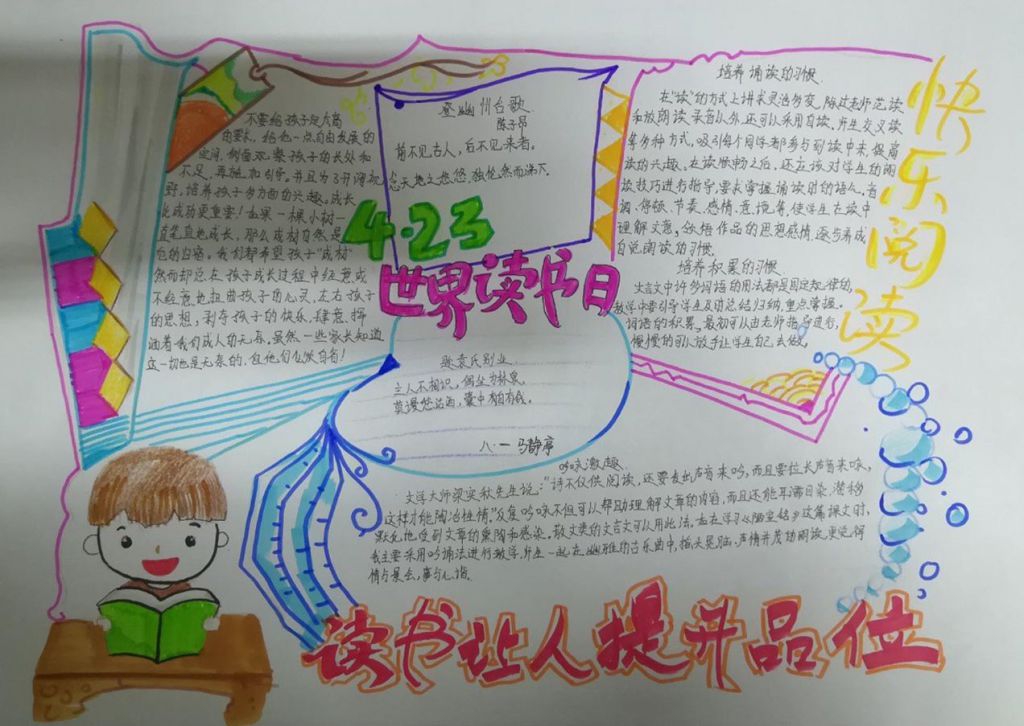 不要给孩子定太高
的要求,给他一点自由发展的
空间,细面观察孩子的长处和
不足,再施加引导。并且为了开阔视
野,培养孩子多方面的兴趣,成长
比成功更重要!如果一棵小树一
直笔直地成长,那么成材自然是
它的归宿。我们都希望孩子“成材”
然而却总在孩子成长过程中经意或
不经意地扭曲孩子的心灵,左右孩子
的思想,剥夺孩子的快乐,肆意、挥
洒着我们成人的无奈。虽然一些家长知道
这一切也是无奈的,
登幽州台歌
陈子昂
前不见古人,后不见来者。
念天地之悠悠,独怆然而涕下。
4·23
世界读书日
培养诵读的习惯
在“读”的方式上讲求灵活多变,除过老师范读
和放朗读录音以外,还可以采用自读、师生交叉读
等多种方式,吸引每个同学都参与到读中来,提高
读的兴趣。在读顺畅之后,还应该对学生的朗
读技巧进行指导,要求掌握诵读时的语气、音
调、停顿、节奏、感情、意境等,使学生在读中
理解文意,领悟作品的思想感情,逐步养成
自觉阅读的习惯。
培养积累的习惯
文言文中许多词语的用法都是固定规律的,
教学中要引导学生及时总结归纳,重点掌握。
词语的积累,最初可以由老师指导进行,
慢慢的可以放手让学生自己去做。
快乐阅读
题袁氏别业
主人不相识,偶坐为林泉。
莫谩愁沽酒,囊中自有钱。
八·一 马静亭
吟咏激趣
文学大师梁实秋先生说:“诗不仅供阅读,还要发出声音来吟,而且要拉长声音来咏,
这样才能陶冶性情。”反复吟咏不但可以帮助理解文章的内容,而且还能耳濡目染,潜移
默化地受到文章的熏陶和感染。散文类的文言文可以用此法。在学习《陋室铭》这篇课文时,
我主要采用吟诵法进行教学,师生一起在幽雅的古乐曲中,摇头晃脑,声情并茂的朗读,更觉得
情与景会,事与心谐。
读书让人提升品位